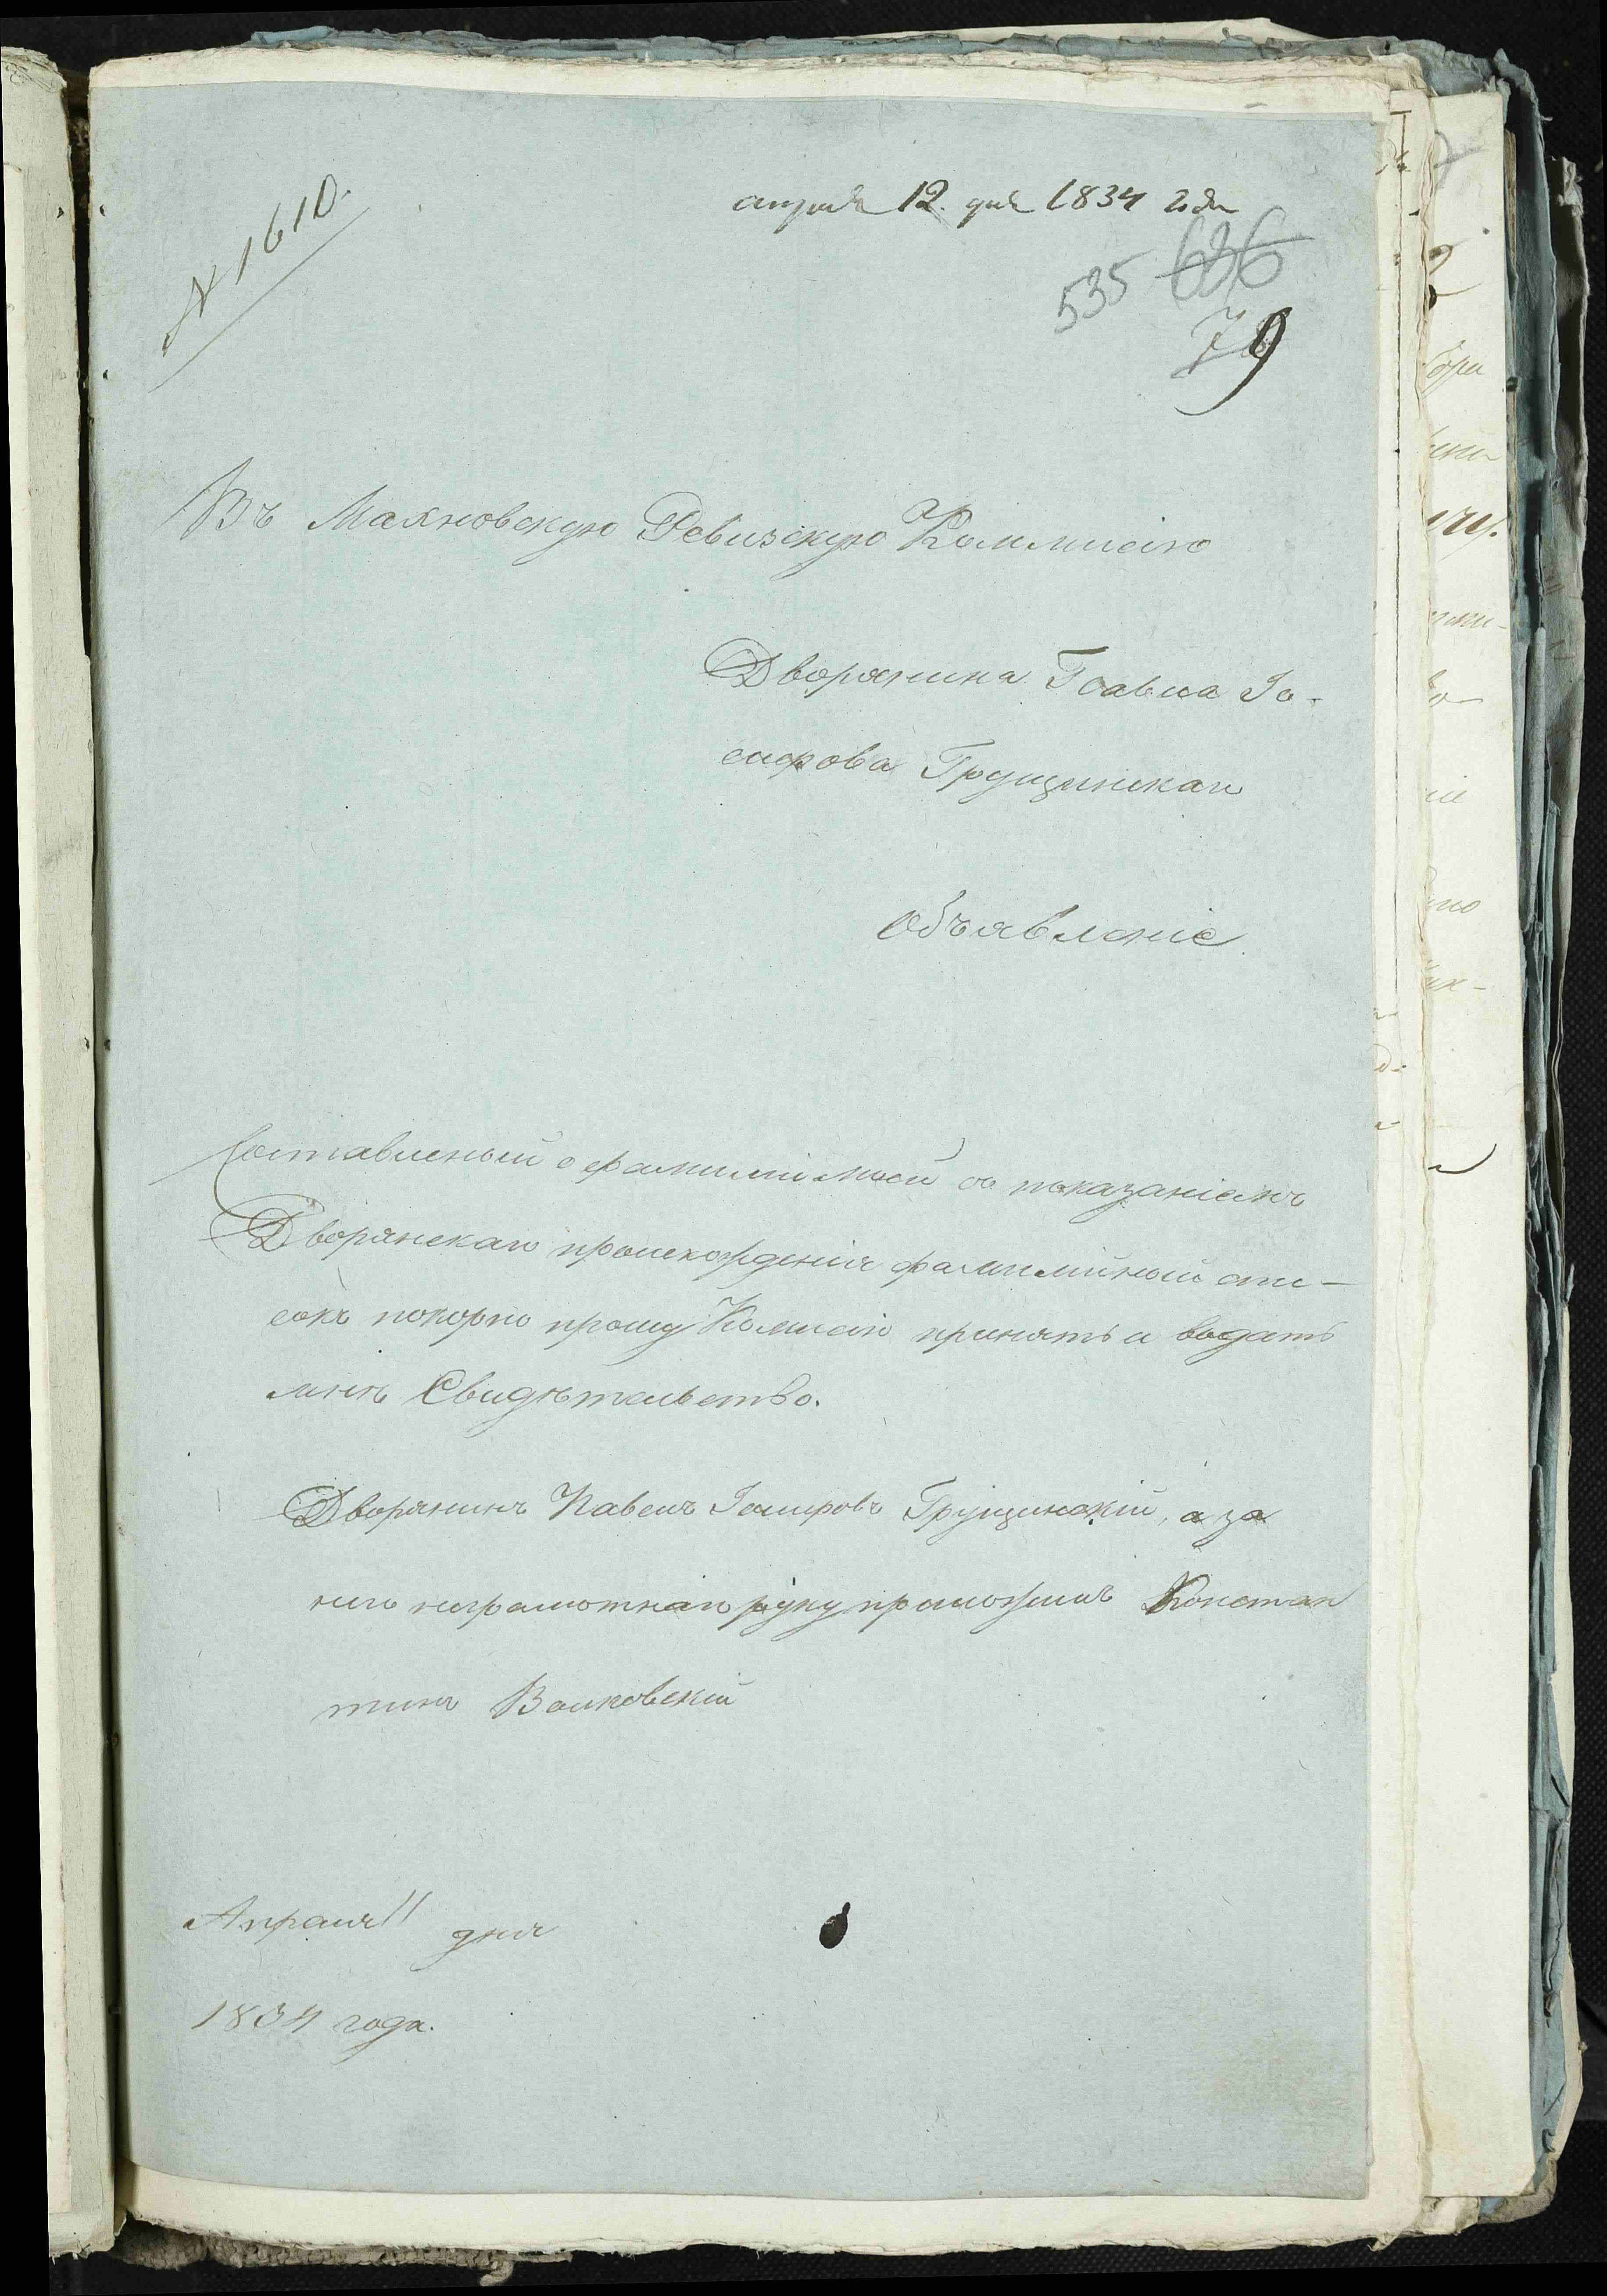 № 1610.
апреля 12. дня 1834 года
535 636
79
Въ Махновскую Ревизскую Коммисію
Дворянина Павла Іо-
сифова Грущинскаго
Объявленіе
Составленый о фамиліи моей съ показаніемъ
Дворянскаго происхожденія фамилийный спи-
сокъ покорно прошу Комисію принять и выдать
мнѣ Свидѣтельство.
Дворянинъ Павелъ Іосифовъ Грущинскій, а за
него неграмотнаго руку приложилъ Констан
тинъ Волковскій
Апреля 11 дня
1834 года.